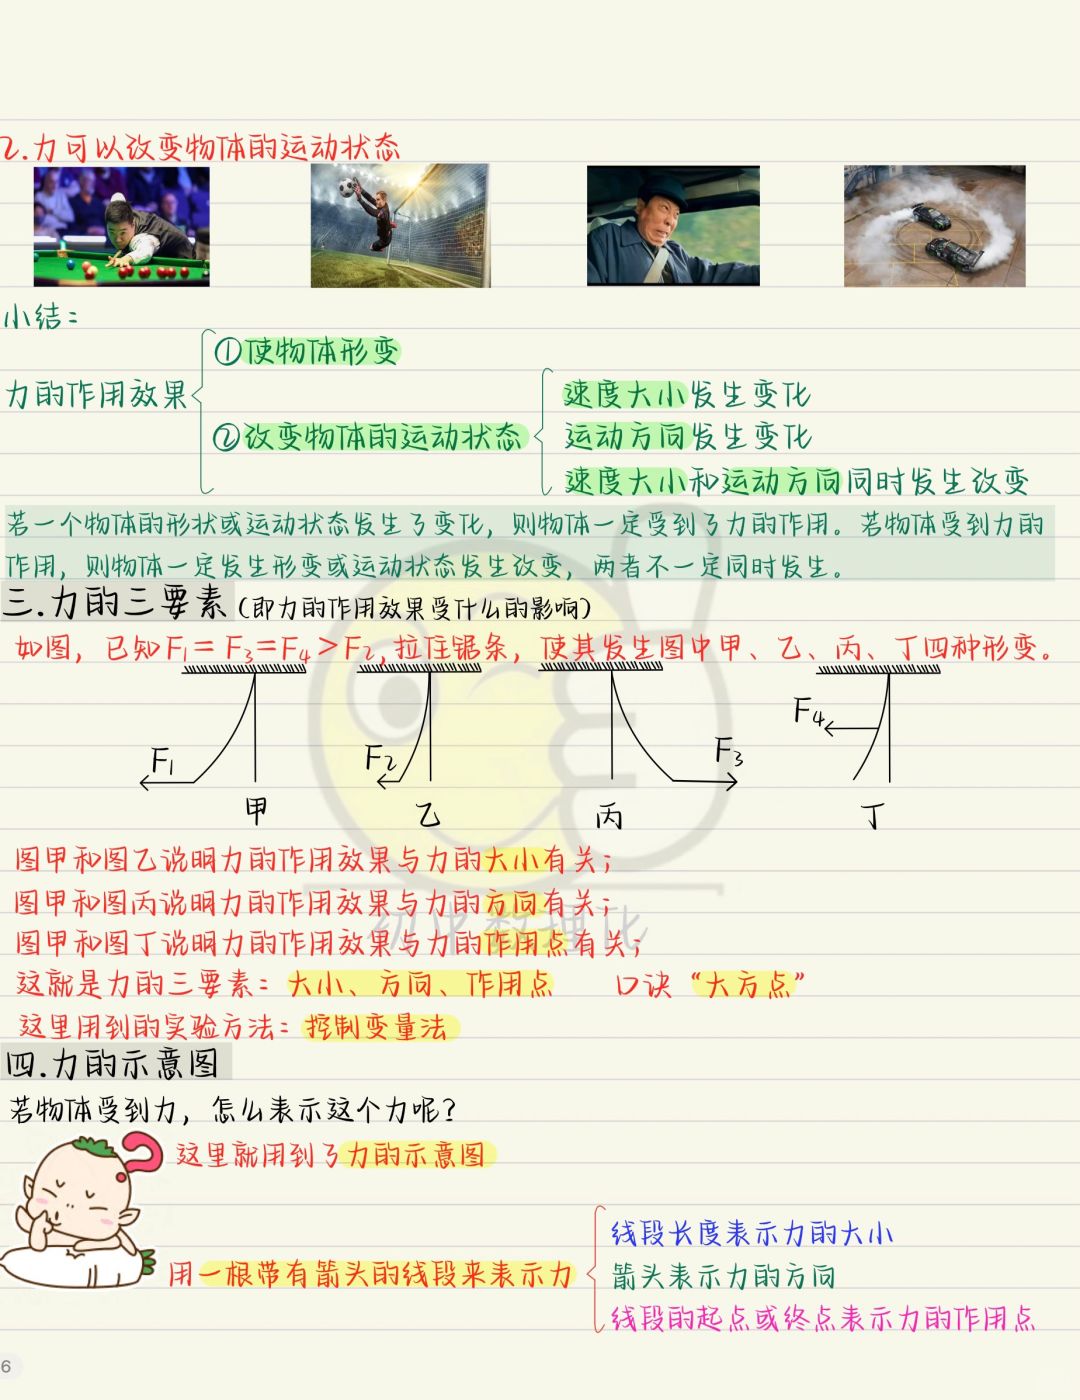 2.力可以改变物体的运动状态
小结：
力的作用效果
①使物体形变
②改变物体的运动状态
速度大小发生变化
运动方向发生变化
速度大小和运动方向同时发生改变
若一个物体的形状或运动状态发生了变化，则物体一定受到了力的作用。若物体受到力的
作用，则物体一定发生形变或运动状态发生改变，两者不一定同时发生。
三.力的三要素(即力的作用效果受什么的影响)
如图，已知F₁=F₃=F₄>F₂,拉住锯条，使其发生图中甲、乙、丙、丁四种形变。
F₁
F₂
F₃
F₄
甲
乙
丙
丁
图甲和图乙说明力的作用效果与力的大小有关；
图甲和图丙说明力的作用效果与力的方向有关；
初中数理化
图甲和图丁说明力的作用效果与力的作用点有关；
这就是力的三要素：大小、方向、作用点 口诀“大方点”
这里用到的实验方法：控制变量法
四.力的示意图
若物体受到力，怎么表示这个力呢？
这里就用到了力的示意图
用一根带有箭头的线段来表示力
线段长度表示力的大小
箭头表示力的方向
线段的起点或终点表示力的作用点
6